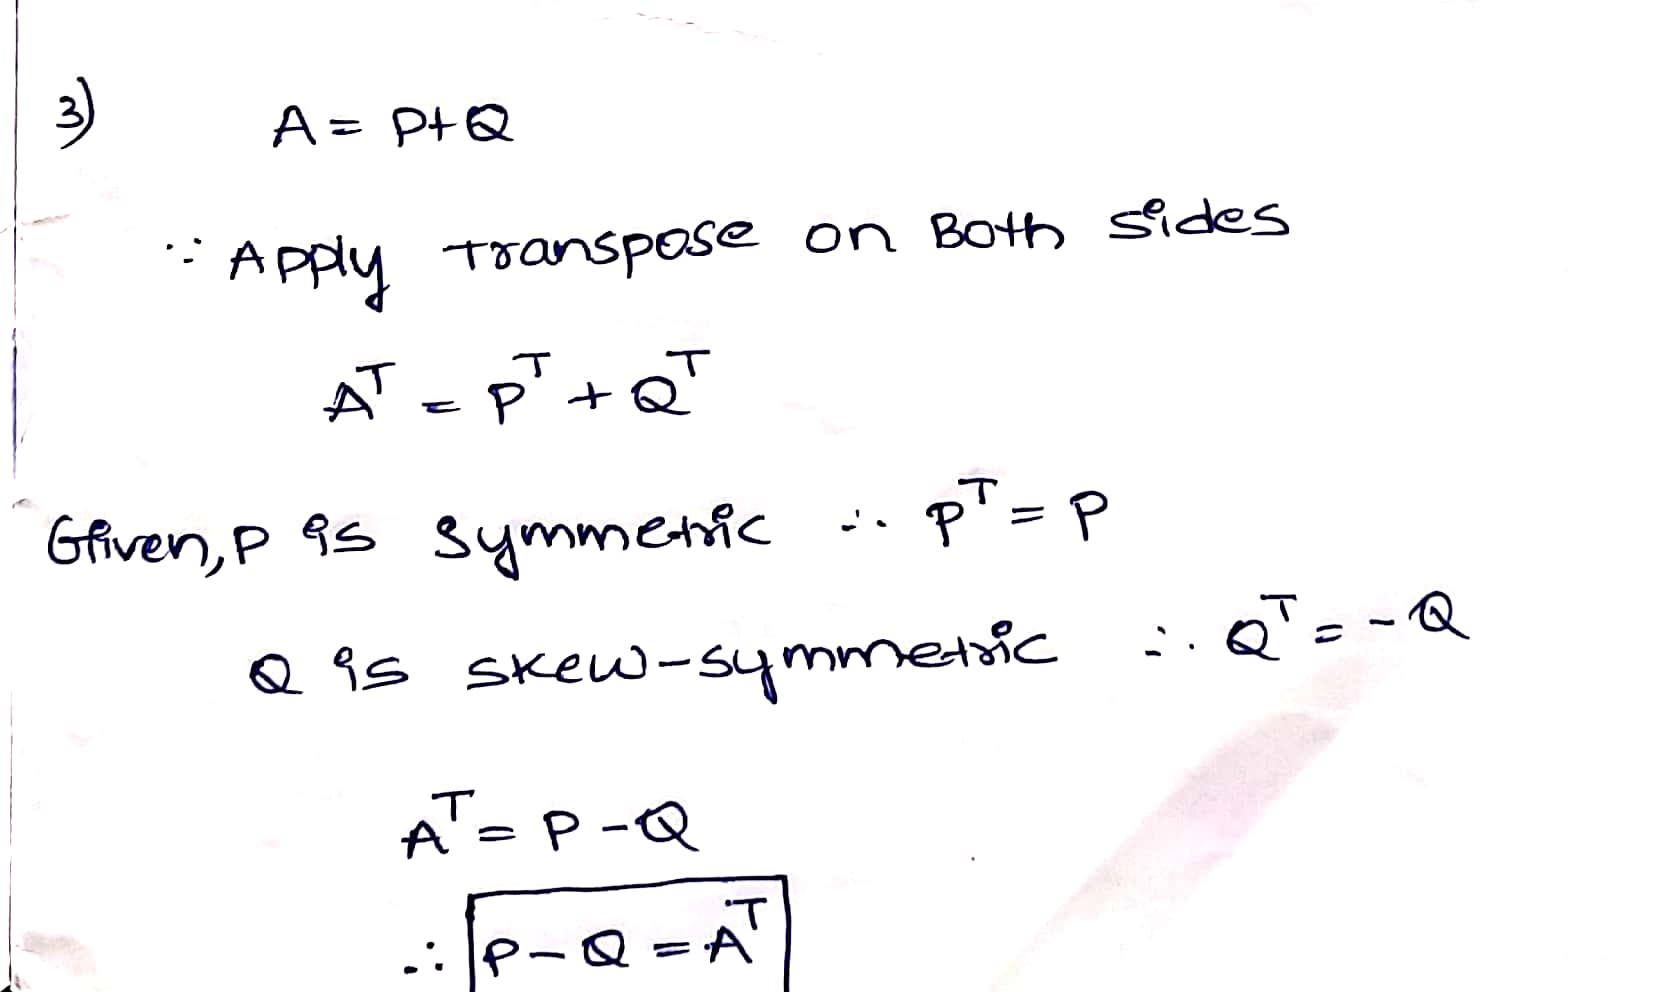 3) A = P+Q
∵ Apply transpose on Both sides
Aᵀ = Pᵀ + Qᵀ
Given, P is symmetric ∴ Pᵀ = P
Q is skew-symmetric ∴ Qᵀ = -Q
Aᵀ = P - Q
∴ P - Q = Aᵀ